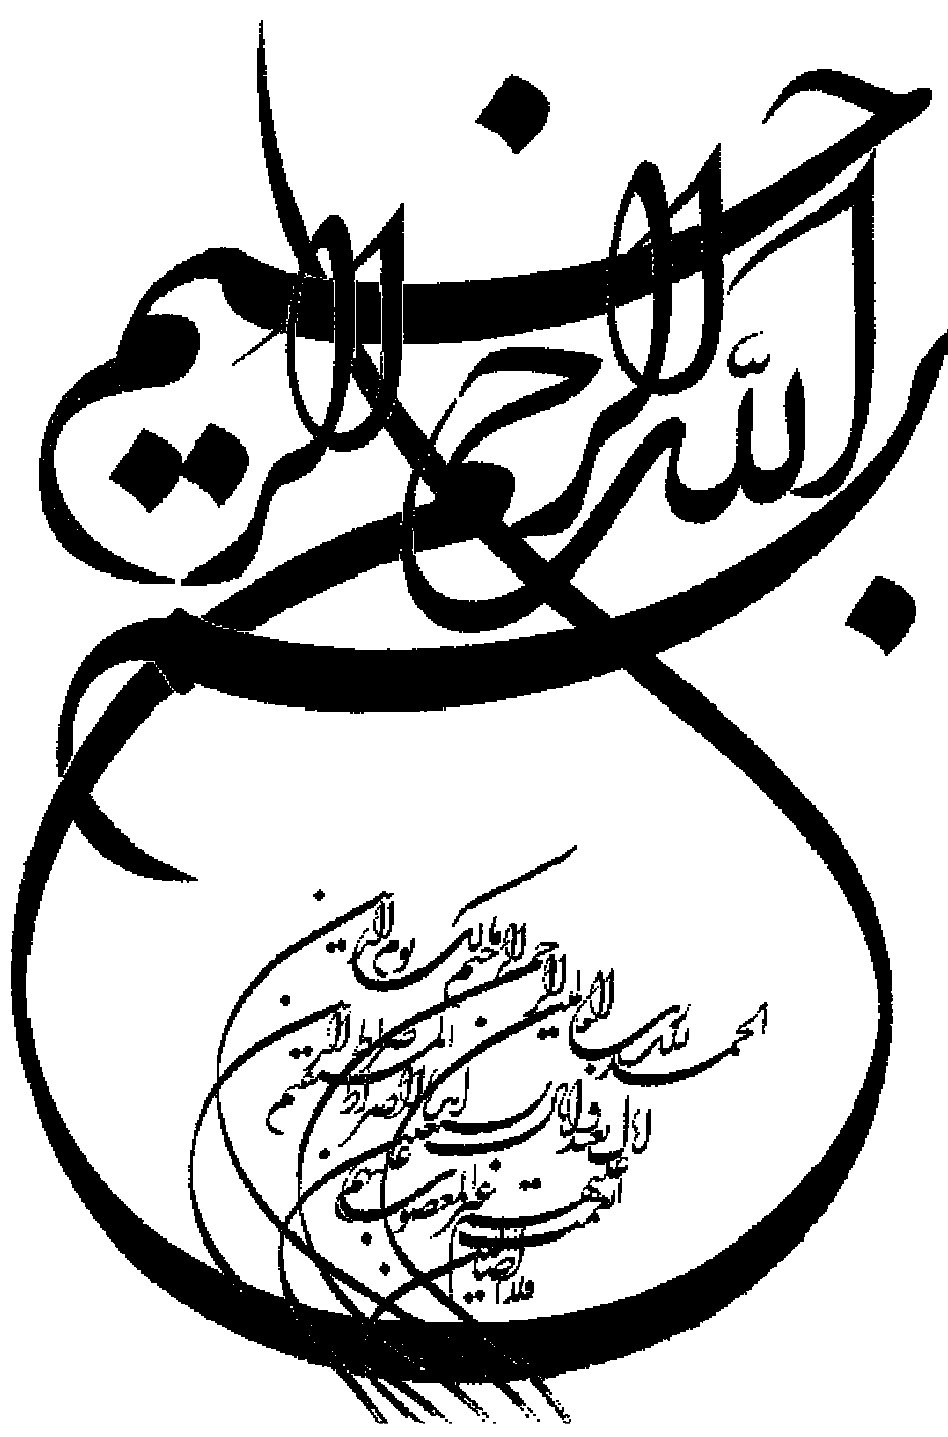 بسم الله الرحمن الرحیم
الحمد لله رب العالمین
الرحمن الرحیم مالک یوم الدین
ایاک نعبد و ایاک نستعین اهدنا الصراط المستقیم
صراط الذین انعمت علیهم غیر المغضوب علیهم
ولا الضالین